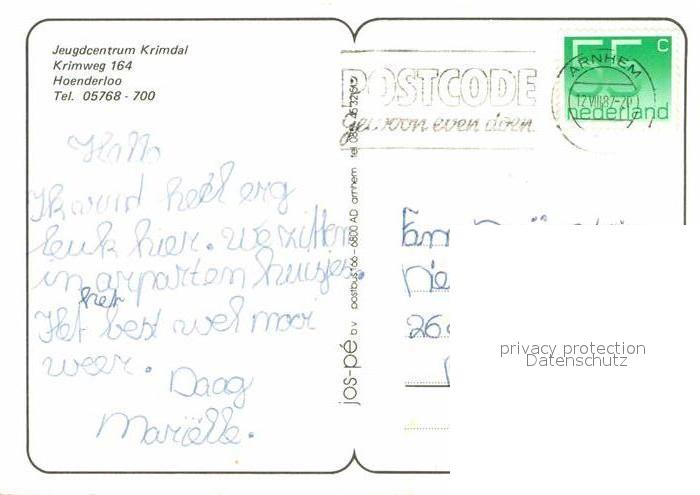 Jeugdcentrum Krimdal
Krimweg 164
Hoenderloo
Tel. 05768 - 700
Hallo
Ik vind heel erg
leuk hier. we zitten
in aparten huisjes.
het
Het best wel mooi
weer.
Daag
Mariëlle.
jos-pé b.v. postbus 166 - 6800 AD arnhem tel.
POSTCODE
Gewoon even doen
ARNHEM
12 VIII 87
55 c
nederland
Fam
26
privacy protection
Datenschutz